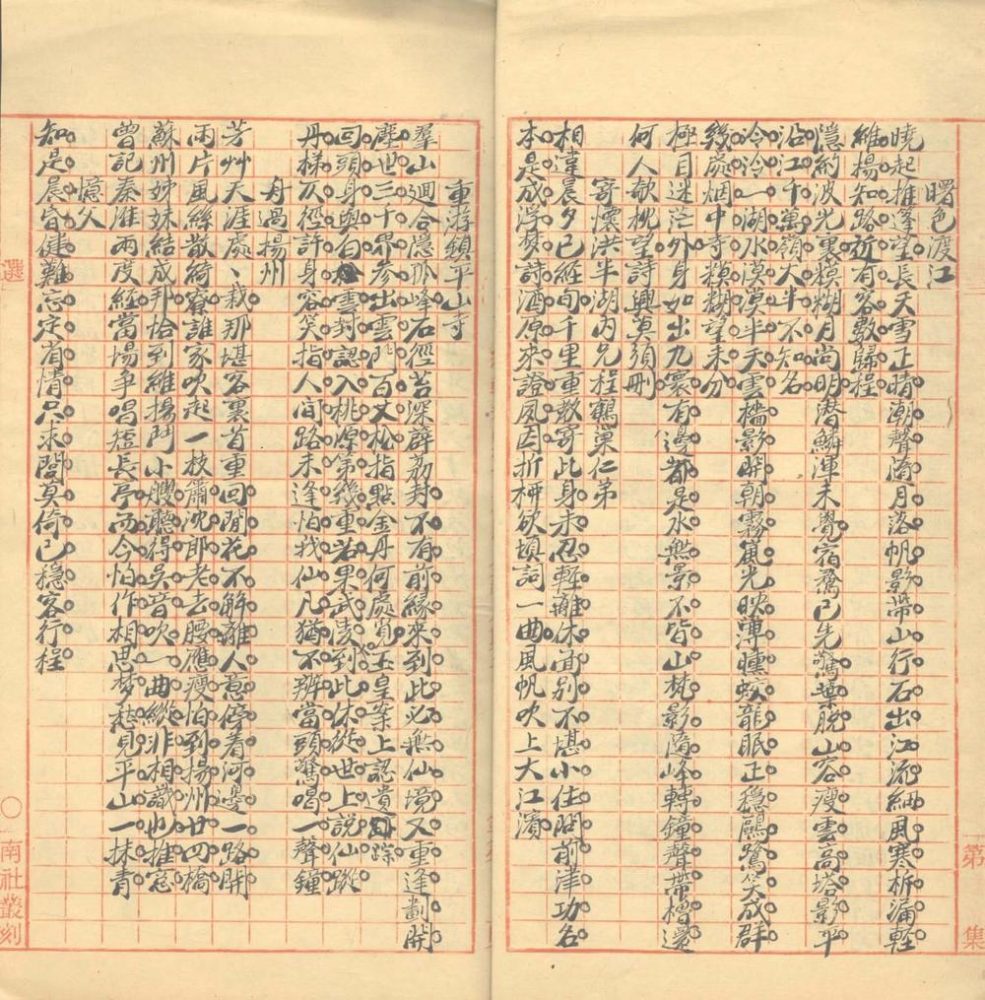 曙色渡江
曉起推篷望長天雪正晴潮聲淘月落帆影帶山行石出江流細風寒柝漏輕
維揚知路近有客數歸程
隱約波光裏模糊月尚明潛鱗渾未覺宿鳥已先驚葉脫山容瘦雲高塔影平
沿江千萬嶺大半不知名
冷冷一湖水漠漠半天雲檣影開朝霧嵐光映薄曛蛟龍眠正穩鷗鷺笑成群
幾處烟中寺模糊望未分
極目迷茫外身如出九寰有邊都是水無景不皆山梵影隨峰轉鐘聲帶櫓還
何人欹枕望詩興莫須刪
寄懷洪半湖內兄程鶴巢仁弟
相違晨夕已經旬千里重教寄此身未忍輕離休面別不堪小住問前津功名
本是成浮夢詩酒原來證夙因折柳欲填詞一曲風帆吹上大江濱
重游鎮平山寺
羣山迴合隱孤峰石徑苔深薜荔封不有前緣來到此必無仙境又重逢劃開
塵世三千界參出雲門百丈松指點金丹何處覓玉皇案上認遺踪
回頭身與白雲封認入桃源第幾重若果武陵到此休從世上說仙蹤
丹梯仄徑許身容笑指人間路未逢怕我仙凡猶不辨當頭驚喝一聲鐘
舟過揚州
芳艸天涯處、栽那堪客裏首重回閒花不解離人意停着河邊一路開
兩片風絲散綺寮誰家吹起一枝簫沈郎老去腰應瘦怕到揚州廿四橋
蘇州姊妹結成邦恰到維揚鬥小艭聽得吳音吹一曲縱非相識也推窓
曾記秦淮兩度經當場爭唱短長亭而今怕作相思夢愁見平山一抹青
憶父
知是晨昏健難忘定省情只求閭莫倚已穩客行程
選
○
南社叢刻
第
集